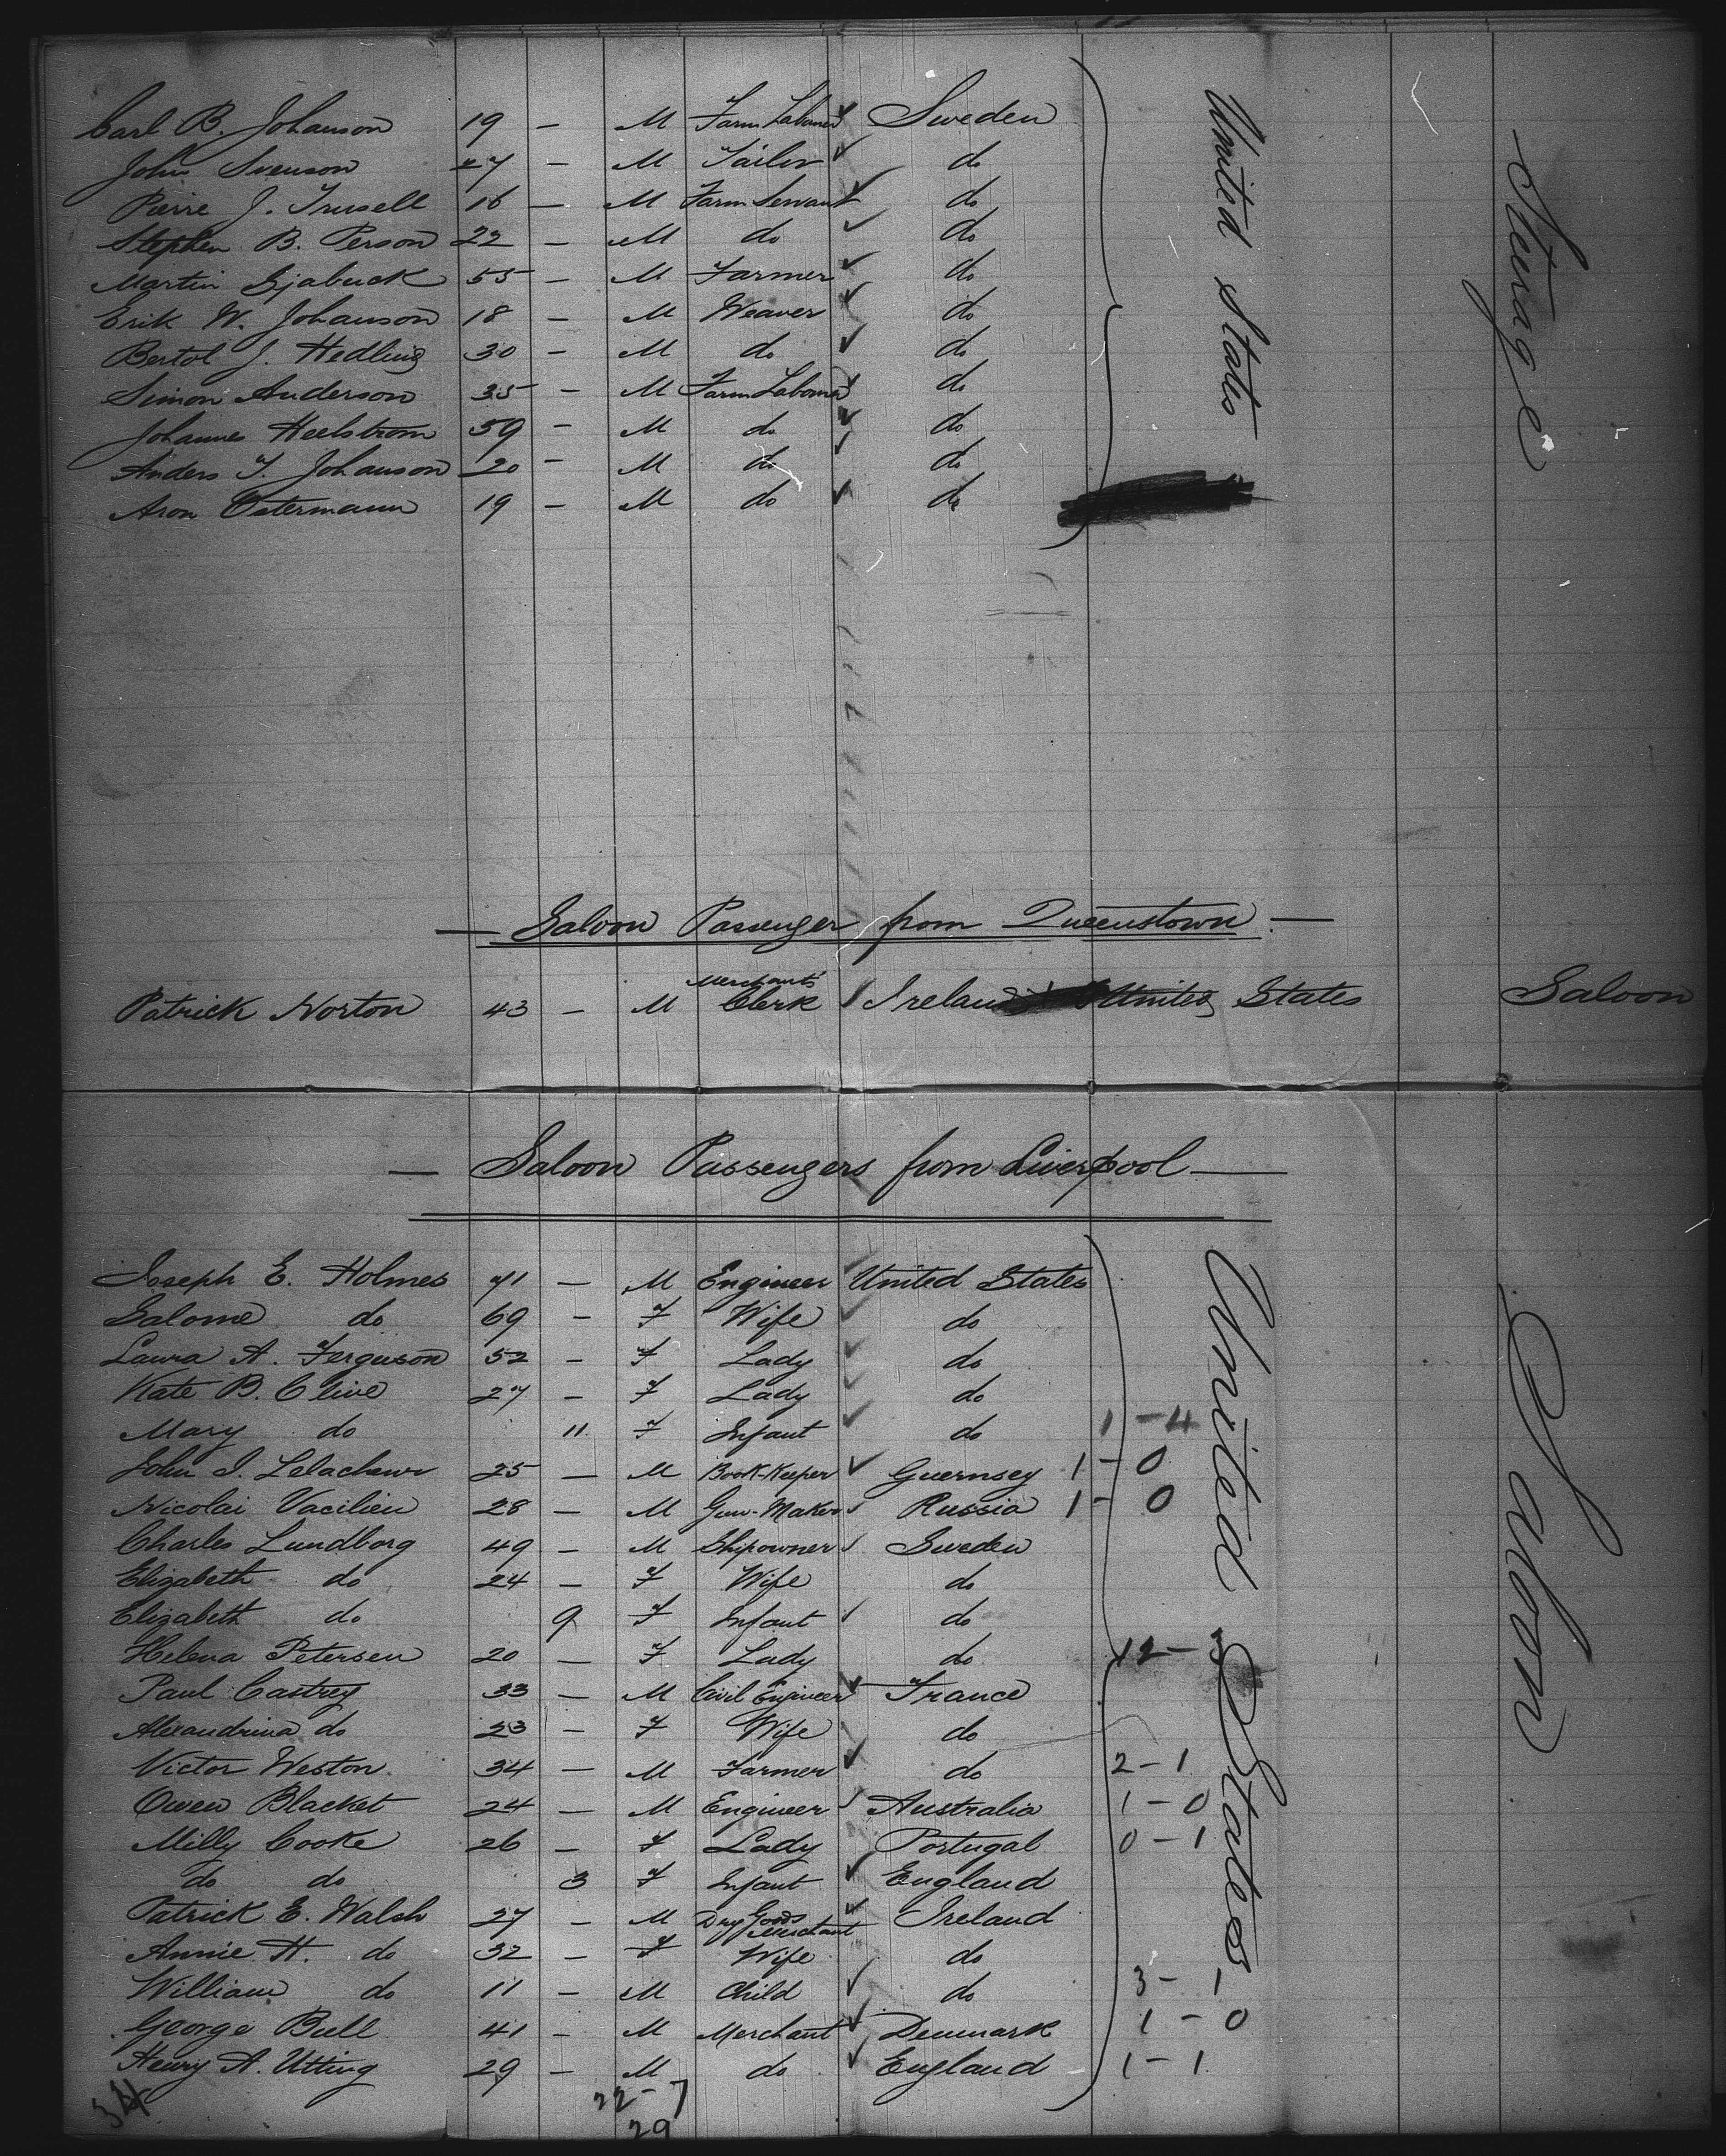 Carl B. Johanson 19 — M Farm Labourer Sweden
John Svenson 27 — M Tailor do
Pierre J. Trusell 16 — M Farm Servant do
Stephen B. Person 22 — M do do
Martin Gjabuck 55 — M Farmer do
Erik W. Johanson 18 — M Weaver do
Bertol J. Hedling 30 — M do do
Simon Anderson 35 — M Farm Labourer do
Johannes Heelstrom 59 — M do do
Anders F. Johanson 20 — M do do
Aron Ostermann 19 — M do do
United States
Steerage
— Saloon Passenger from Queenstown. —
Patrick Norton 43 — M Merchants' Clerk Ireland United States Saloon
— Saloon Passengers from Liverpool —
Joseph E. Holmes 71 — M Engineer United States
Salome do 69 — F Wife do
Laura A. Ferguson 52 — F Lady do
Kate B. Clive 27 — F Lady do
Mary do 11 F Infant do 1-4
John I. Lelacheur 25 — M Book-Keeper Guernsey 1-0
Nicolai Vacilieu 28 — M Gun-Maker Russia 1-0
Charles Lundborg 49 — M Shipowner Sweden
Elizabeth do 24 — F Wife do
Elizabeth do 9 F Infant do
Helena Petersen 20 — F Lady do
Paul Castrey 33 — M Civil Engineer France
Alexandrina do 23 — F Wife do
Victor Weston 34 — M Farmer do 2-1
Owen Blacket 24 — M Engineer Australia 1-0
Milly Cooke 26 — F Lady Portugal 0-1
do do 3 F Infant England
Patrick E. Walsh 27 — M Dry Goods Merchant Ireland
Annie H. do 32 — F Wife do
William do 11 — M Child do 3-1
George Bull 41 — M Merchant Denmark 1-0
Henry A. Utting 29 — M do England 1-1
United States
Saloon
34
22-7
29